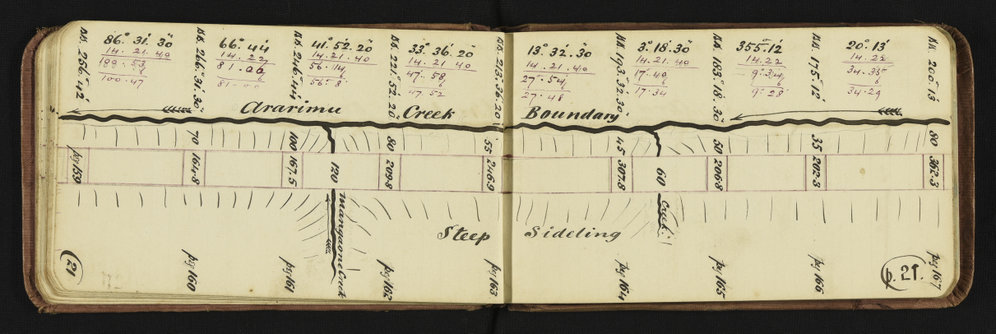 86° 31' 30"
14 . 21 . 40
100 . 47
66° 44'
14 . 22
81 . 00
41° 52' 20"
14 . 21 . 40
56 . 14
33° 36' 20"
14 . 21 . 40
47 . 58
47 . 52
13° 32' 30"
14 . 21 . 40
27 . 54
27 . 48
3° 18' 30"
14 . 21 . 40
17 . 40
17 . 34
355° 12'
14 . 22
9 . 34
9 . 28
20° 13'
14 . 22
34 . 35
34 . 29
BB. 256° 42'
BB. 246° 31' 30"
BB. 216° 44'
BB. 221° 52' 20"
BB. 213° 36' 20"
BB. 193° 32' 30"
BB. 183° 18' 30"
BB. 175° 12'
BB. 200° 13'
Ararimu Creek Boundary
70
100
80
55
45
50
35
80
pg 159
164.8
167.5
120
209.8
246.9
307.8
60
206.8
202.3
362.3
Mangaone Creek
Creek
Steep Sideling
pg 160
pg 161
pg 162
pg 163
pg 164
pg 165
pg 166
pg 167
(21)
p. 21.